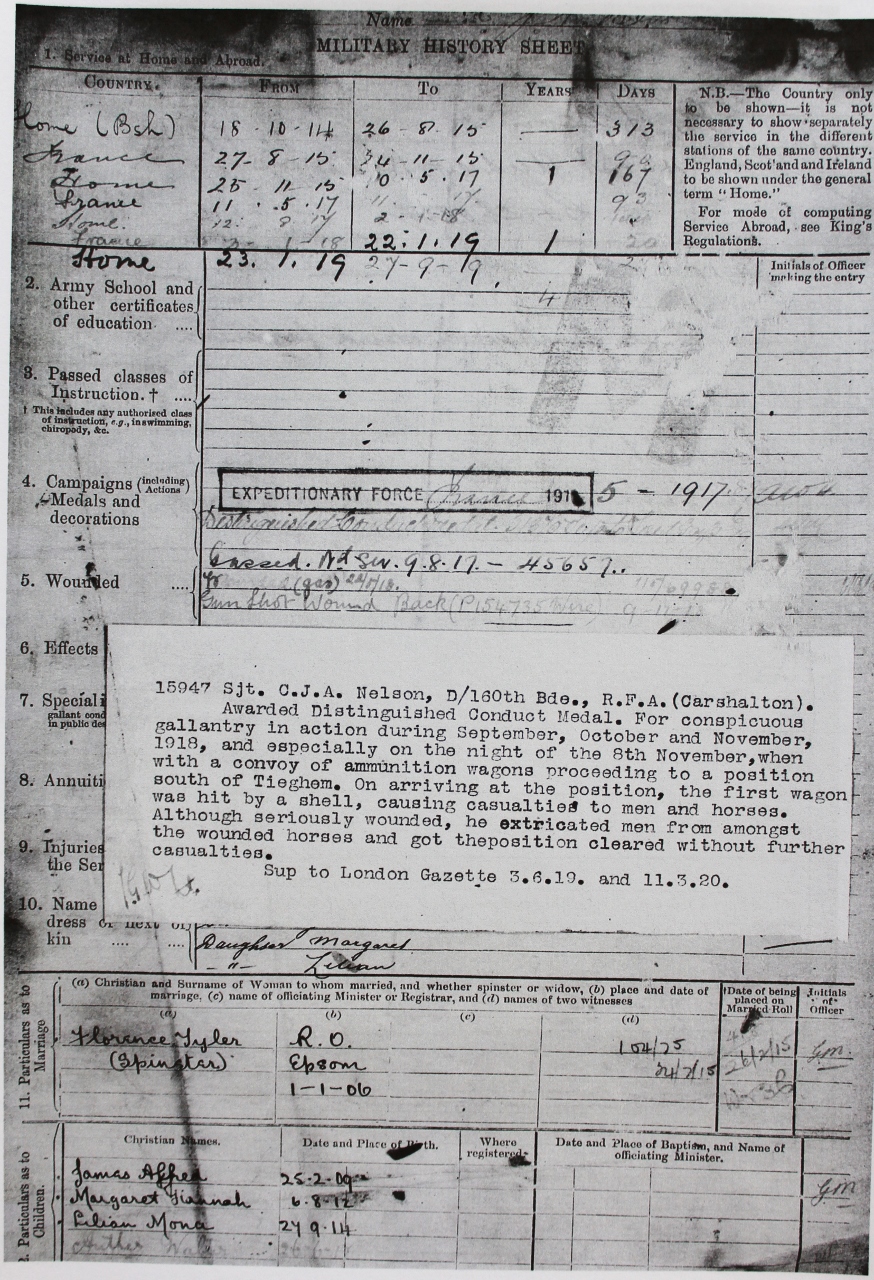 Name
MILITARY HISTORY SHEET
1. Service at Home and Abroad.
COUNTRY. FROM TO YEARS DAYS
Home (Bsh) 18 · 10 · 14 26 - 8 · 15 — 313
France 27 - 8 - 15 24 - 11 - 15 —
Home 25 · 11 · 15 10 · 5 · 17 1 167
France 11 · 5 · 17 93
Home. 12. 8 17 2 - 1 - 18
France 3 - 1 - 18 22. 1. 19 1 20
Home 23. 1. 19 27 - 9 - 19
N.B.—The Country only
to be shown—it is not
necessary to show separately
the service in the different
stations of the same country.
England, Scotland and Ireland
to be shown under the general
term "Home."
For mode of computing
Service Abroad, see King's
Regulations.
Initials of Officer
making the entry
2. Army School and
other certificates
of education ....
4
3. Passed classes of
Instruction. † ....
† This includes any authorised class
of instruction, e.g., in swimming,
chiropody, &c.
4. Campaigns (including Actions)
Medals and
decorations
EXPEDITIONARY FORCE France 191 5 - 1917.
Distinguished Conduct Medal
Gassed. Nd Sw. 9.8.17. - 45657..
5. Wounded ....
(gas)
Gun Shot Wound Back (P154735 Wire)
6. Effects
7. Speciali
gallant cond
in public de
8. Annuiti
9. Injuries
the Ser
10. Name
dress of next of
kin .... ....
15947 Sjt. C.J.A. Nelson, D/160th Bde., R.F.A.(Carshalton).
Awarded Distinguished Conduct Medal. For conspicuous
gallantry in action during September, October and November,
1918, and especially on the night of the 8th November,when
with a convoy of ammunition wagons proceeding to a position
south of Tieghem. On arriving at the position, the first wagon
was hit by a shell, causing casualties to men and horses.
Although seriously wounded, he extricated men from amongst
the wounded horses and got theposition cleared without further
casualties.
Sup to London Gazette 3.6.19. and 11.3.20.
Daughter Margaret
- " - Lilian
11. Particulars as to
Marriage
(a) Christian and Surname of Woman to whom married, and whether spinster or widow, (b) place and date of
marriage, (c) name of officiating Minister or Registrar, and (d) names of two witnesses
Date of being
placed on
Married Roll
Initials
of
Officer
(a) (b) (c) (d)
Florence Tyler R.O. 104/25
(Spinster) Epsom 24/2/15 26/2/15 G.M.
1-1-06
Particulars as to
Children.
Christian Names. Date and Place of Birth. Where
registered. Date and Place of Baptism, and Name of
officiating Minister.
James Alfred 25-2-09 G.M
Margaret Hannah 6.8.12
Lilian Mona 27 9.14
Arthur Walter